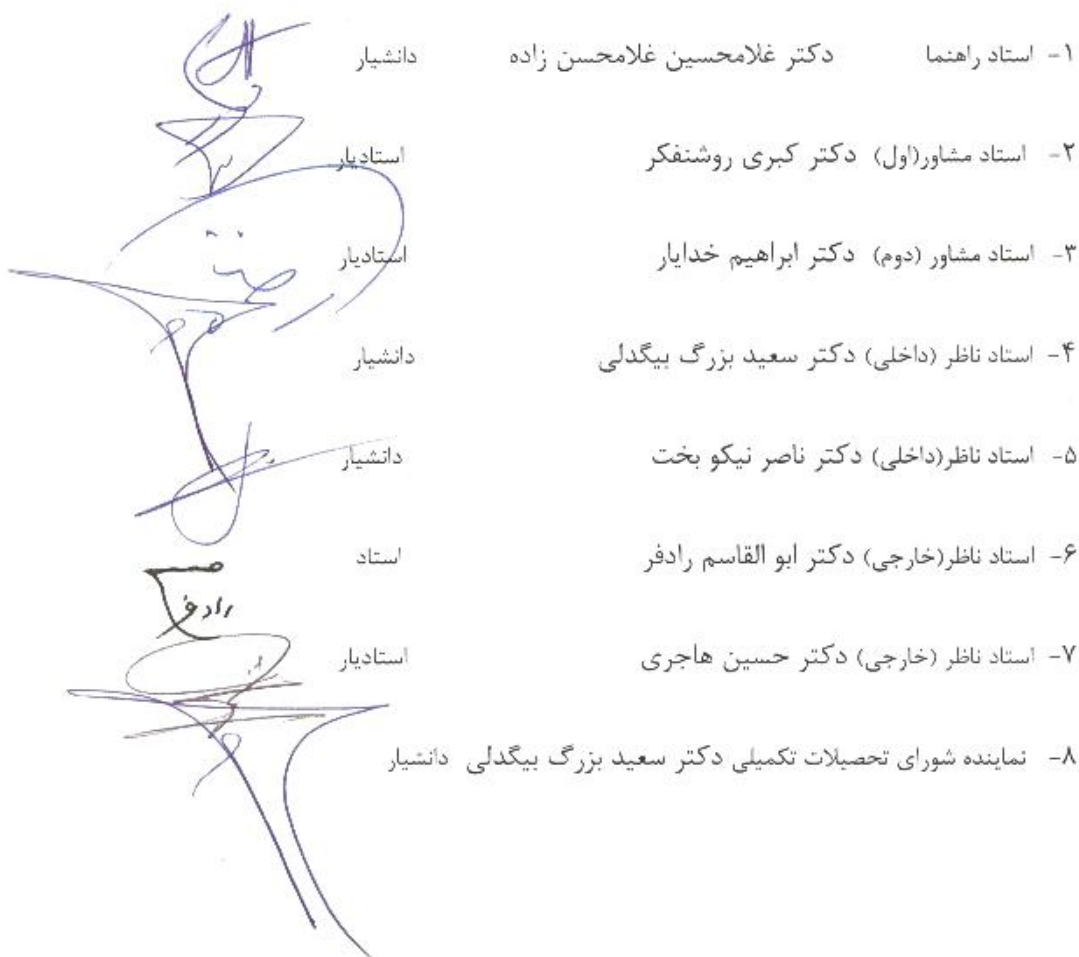 ۱- استاد راهنما دکتر غلامحسین غلامحسن زاده دانشیار
۲- استاد مشاور(اول) دکتر کبری روشنفکر استادیار
۳- استاد مشاور (دوم) دکتر ابراهیم خدایار استادیار
۴- استاد ناظر (داخلی) دکتر سعید بزرگ بیگدلی دانشیار
۵- استاد ناظر(داخلی) دکتر ناصر نیکو بخت دانشیار
۶- استاد ناظر(خارجی) دکتر ابو القاسم رادفر استاد
رادفر
۷- استاد ناظر (خارجی) دکتر حسین هاجری استادیار
۸- نماینده شورای تحصیلات تکمیلی دکتر سعید بزرگ بیگدلی دانشیار